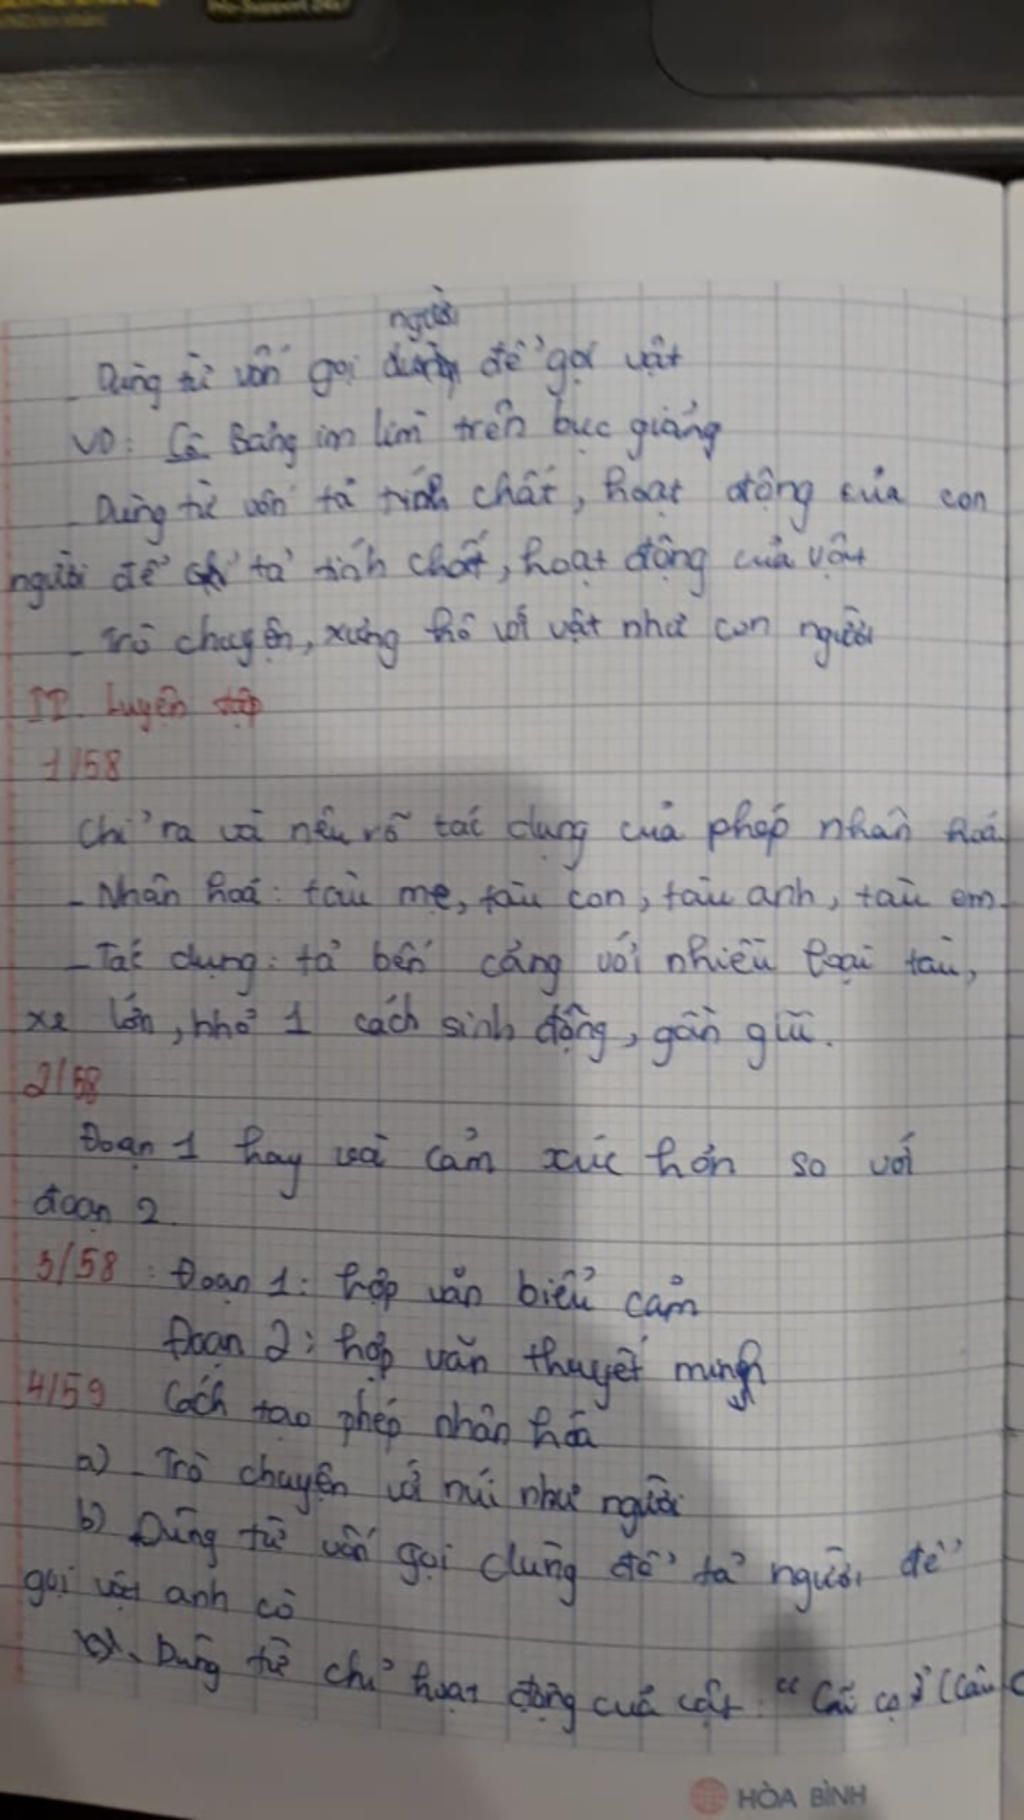 người
- Dùng từ vốn gọi để gọi vật
VD: Cô Bảng im lìm trên bục giảng
- Dùng từ vốn tả tính chất, hoạt động của con
người để tả tính chất, hoạt động của vật
- Trò chuyện, xưng hô với vật như con người
II. Luyện tập
1/58
Chỉ ra và nêu rõ tác dụng của phép nhân hoá
- Nhân hoá: tàu mẹ, tàu con, tàu anh, tàu em
- Tác dụng: tả bến cảng với nhiều loại tàu,
xe lớn, nhỏ 1 cách sinh động, gần gũi.
2/58
Đoạn 1 hay và cảm xúc hơn so với
đoạn 2.
3/58: Đoạn 1: hợp văn biểu cảm
Đoạn 2: hợp văn thuyết minh
4/59 Cách tạo phép nhân hóa
a) - Trò chuyện với núi như người
b) Dùng từ vốn gọi dùng để tả người để
gọi vật anh cò
c) - Dùng từ chỉ hoạt động của vật: "
HÒA BÌNH